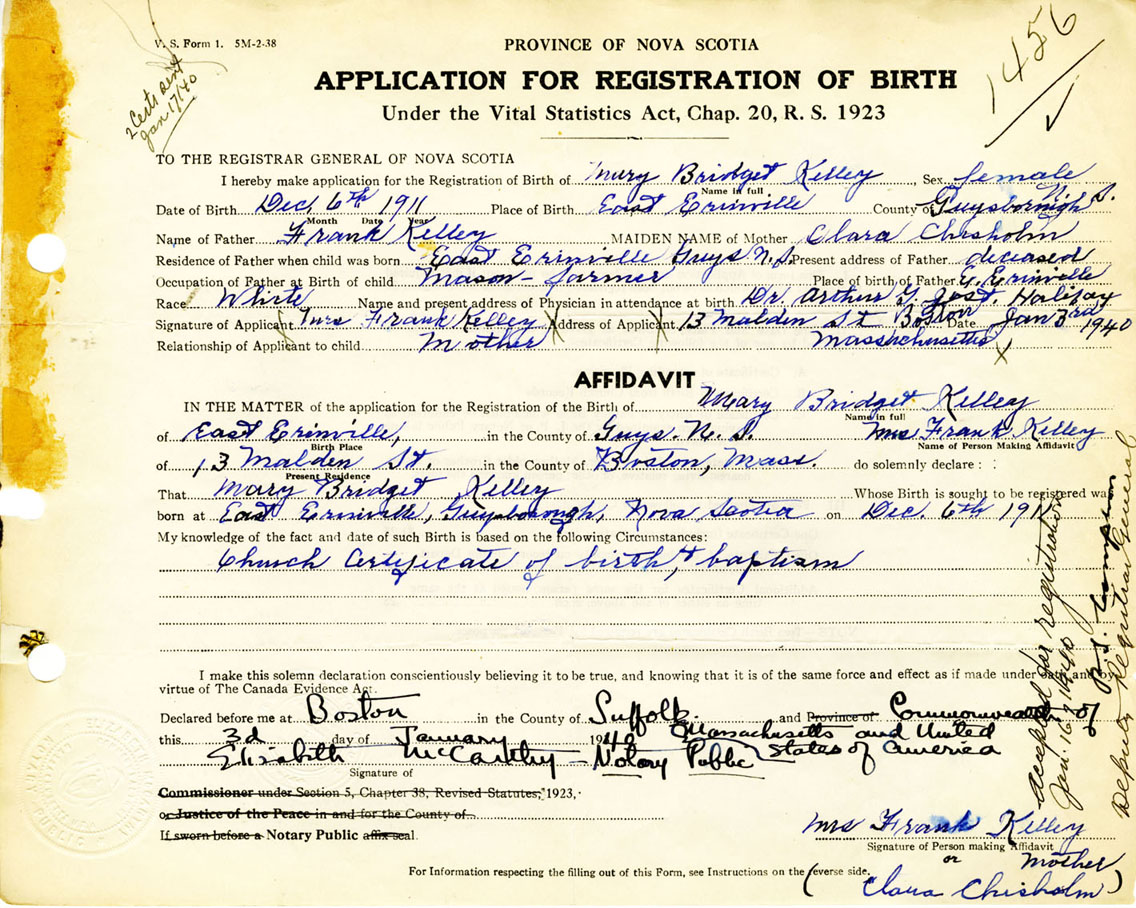 V. S. Form 1. 5M-2-38
1456
2 Certs sent
Jan 17/40
PROVINCE OF NOVA SCOTIA
APPLICATION FOR REGISTRATION OF BIRTH
Under the Vital Statistics Act, Chap. 20, R. S. 1923
TO THE REGISTRAR GENERAL OF NOVA SCOTIA
I hereby make application for the Registration of Birth of Mary Bridget Kelley, Sex female
Name in full
Date of Birth Dec. 6th 1911 Place of Birth East Erinville County of Guysborough N.S.
Month Date Year
Name of Father Frank Kelley MAIDEN NAME of Mother Clara Chisholm
Residence of Father when child was born East Erinville Guys N.S. Present address of Father deceased
Occupation of Father at Birth of child Mason-farmer Place of birth of Father E. Erinville
Race White Name and present address of Physician in attendance at birth Dr. Arthur G. Jost. Halifax
Signature of Applicant Mrs Frank Kelley Address of Applicant 13 Malden St Boston Date Jan 3rd 1940
Relationship of Applicant to child Mother Massachusetts
AFFIDAVIT
IN THE MATTER of the application for the Registration of the Birth of Mary Bridget Kelley
Name in full
of East Erinville, in the County of Guys. N.S. Mrs Frank Kelley
Birth Place Name of Person Making Affidavit
of 13 Malden St. in the County of Boston, Mass. do solemnly declare :
Present Residence
That Mary Bridget Kelley Whose Birth is sought to be registered was
born at East Erinville, Guysborough, Nova Scotia on Dec. 6th 1911
My knowledge of the fact and date of such Birth is based on the following Circumstances:
Church Certificate of birth, & baptism
I make this solemn declaration conscientiously believing it to be true, and knowing that it is of the same force and effect as if made under oath and by
virtue of The Canada Evidence Act.
Declared before me at Boston in the County of Suffolk and Province of Commonwealth of
this 3d day of January 1940 Massachusetts and United
Elizabeth McCarthy - Notary Public States of America
Signature of
Commissioner under Section 5, Chapter 38, Revised Statutes, 1923,
or Justice of the Peace in and for the County of
If sworn before a Notary Public affix seal.
Mrs Frank Kelley
Signature of Person making Affidavit
or Mother
For Information respecting the filling out of this Form, see Instructions on the reverse side.
(Clara Chisholm)
accepted for registration
Jan. 16, 1940
Deputy Registrar General